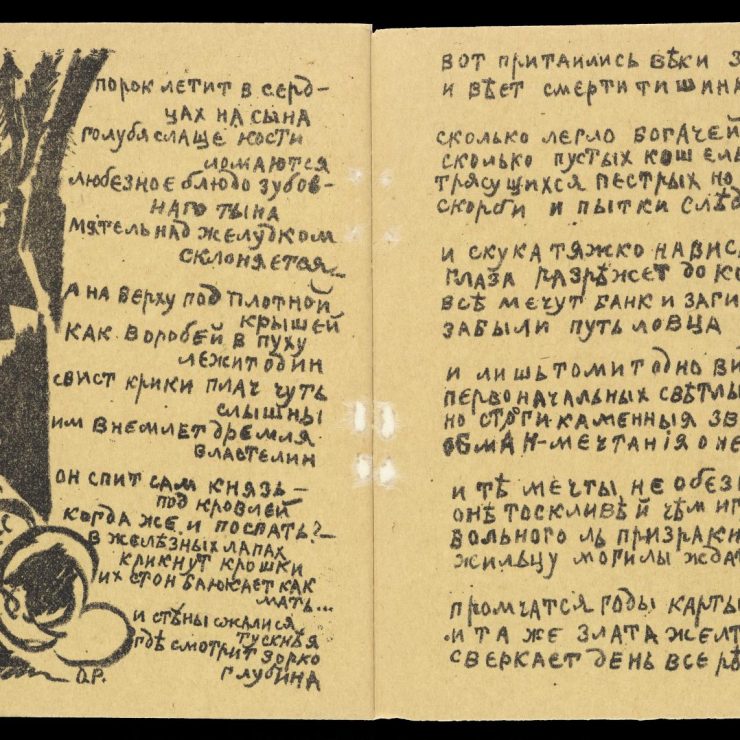 порок летит в серд-
цах на сына
голубя слаще кости
ломаются
любезное блюдо зубов-
наго тына
мятель над желудком
склоняется...
а на верху под плотной
крышей
как воробей в пуху
лежит один
свист крики плач чуть
слышны
им внемлет дремля
властелин
он спит сам князь—
под кровлей
когда же и поспать?—
в желѣзных лапах
крикнут крошки
их стон баюкает как
мать...
и стѣны сжалися
тускнѣя
гдѣ смотрит зорко
глубина
О.Р.
вот притаились вѣки з
и вѣет смерти тишина
сколько легло богачей
сколько пустых кошель
трясущихся пестрых но
скорби и пытки слѣд
и скука тяжко нависл
глаза разрѣжет до ко
всѣ мечут банк и заги
забыли путь ловца
и лишь томит одно ви
первоначальных свѣтлы
но строги каменныя зв
обман-мечтанія о не
и тѣ мечты не обез
онѣ тоскливѣй чѣм иг
больного ль призраки
жильцу могилы ждат
промчатся годы карты
и та же злата желт
сверкает день все рѣ